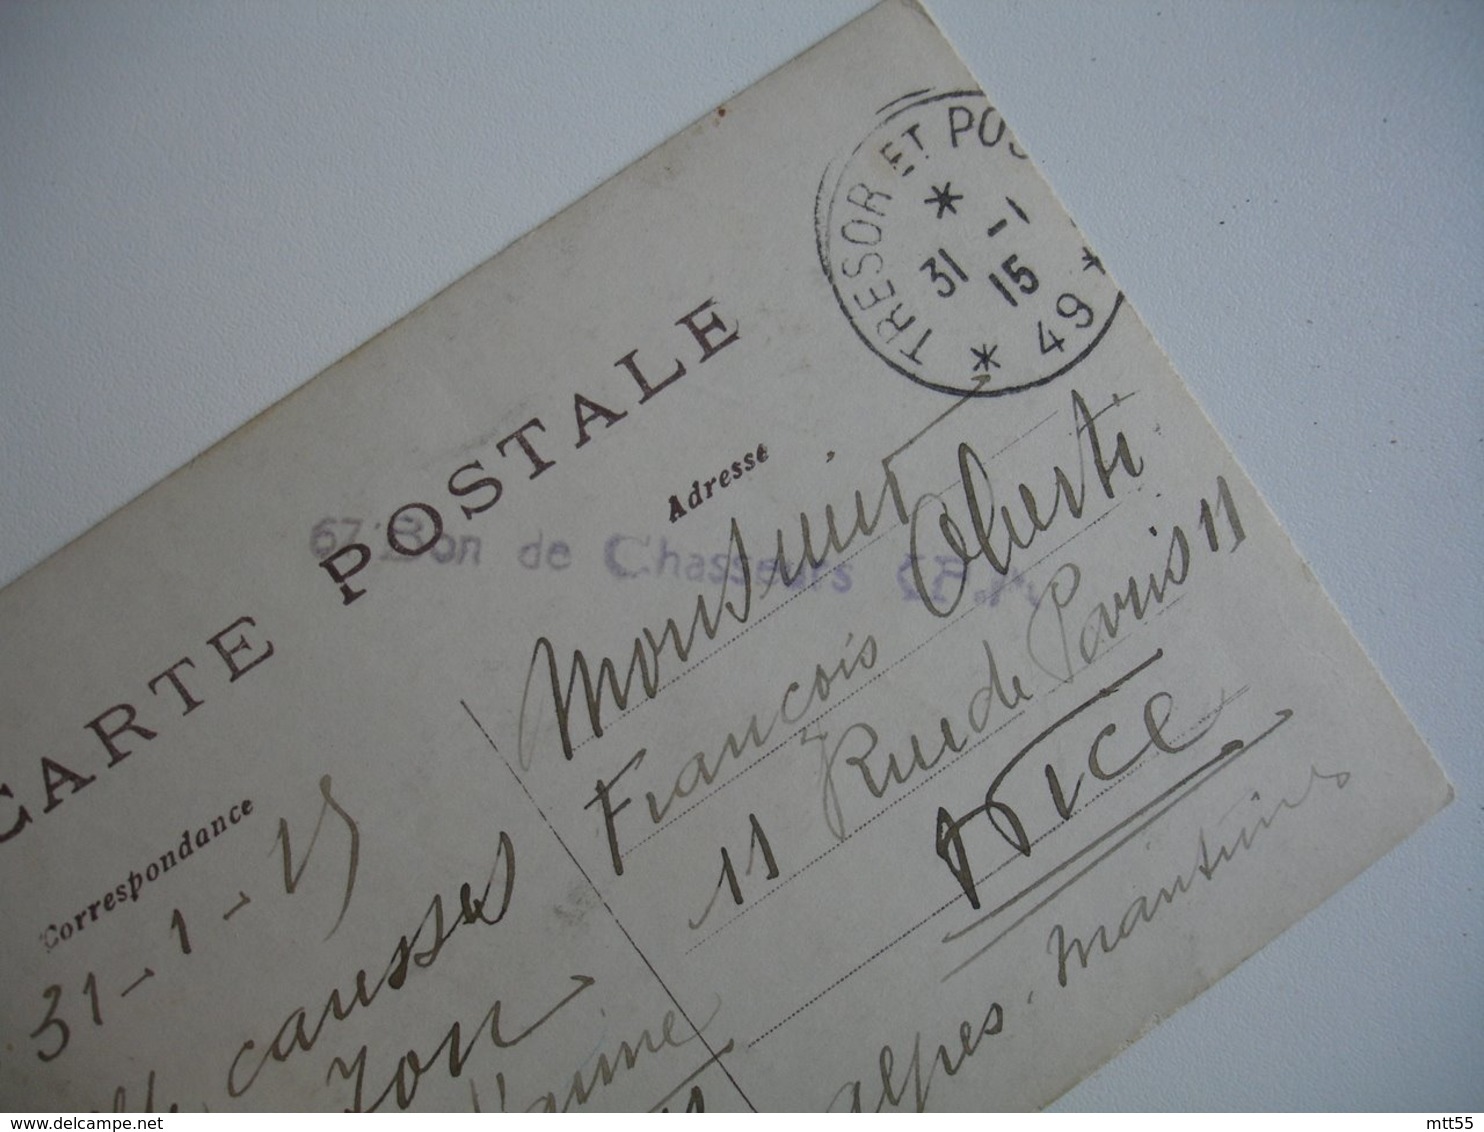 CARTE POSTALE
TRESOR ET POS
31 -1
15
* 49 *
67 Bon de Chasseurs
Adresse
Monsieur Oberti
François
11 Rue de Paris 11
NICE
Alpes-Maritimes
Correspondance
31-1-15
causses
delcampe.net
mtt55